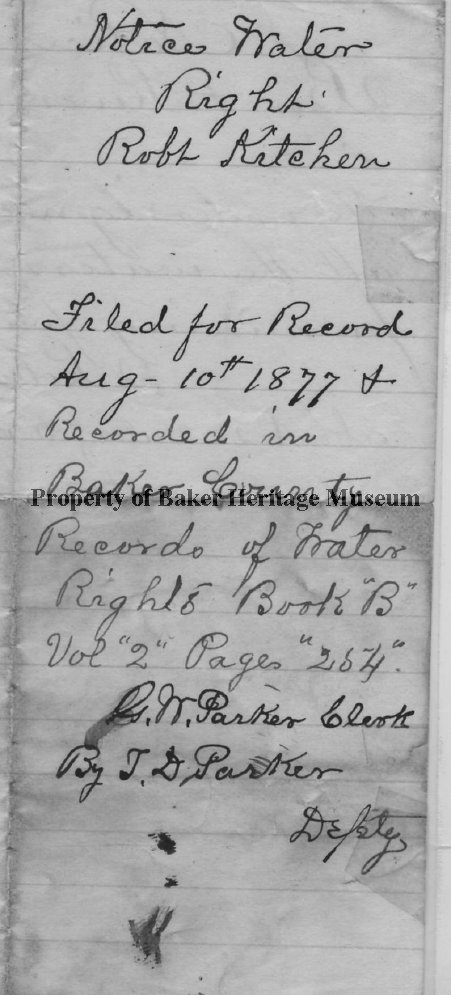 Notice Water
Right
Robt Kitchen
Filed for Record
Aug - 10th 1877 &
Recorded in
Baker County
Property of Baker Heritage Museum
Records of Water
Rights Book "B"
Vol "2" Pages "254".
G. W. Parker Clerk
By T. D Parker
Depty